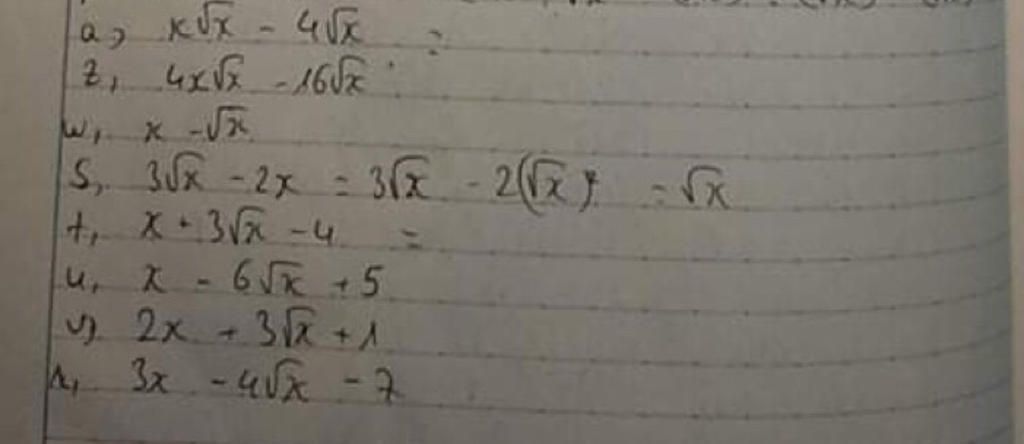 a, x√x - 4√x =
z, 4x√x - 16√x
w, x - √x
S, 3√x - 2x = 3√x - 2(√x)² = √x
t, x + 3√x - 4 =
u, x - 6√x + 5
v) 2x + 3√x + 1
r, 3x - 4√x - 7